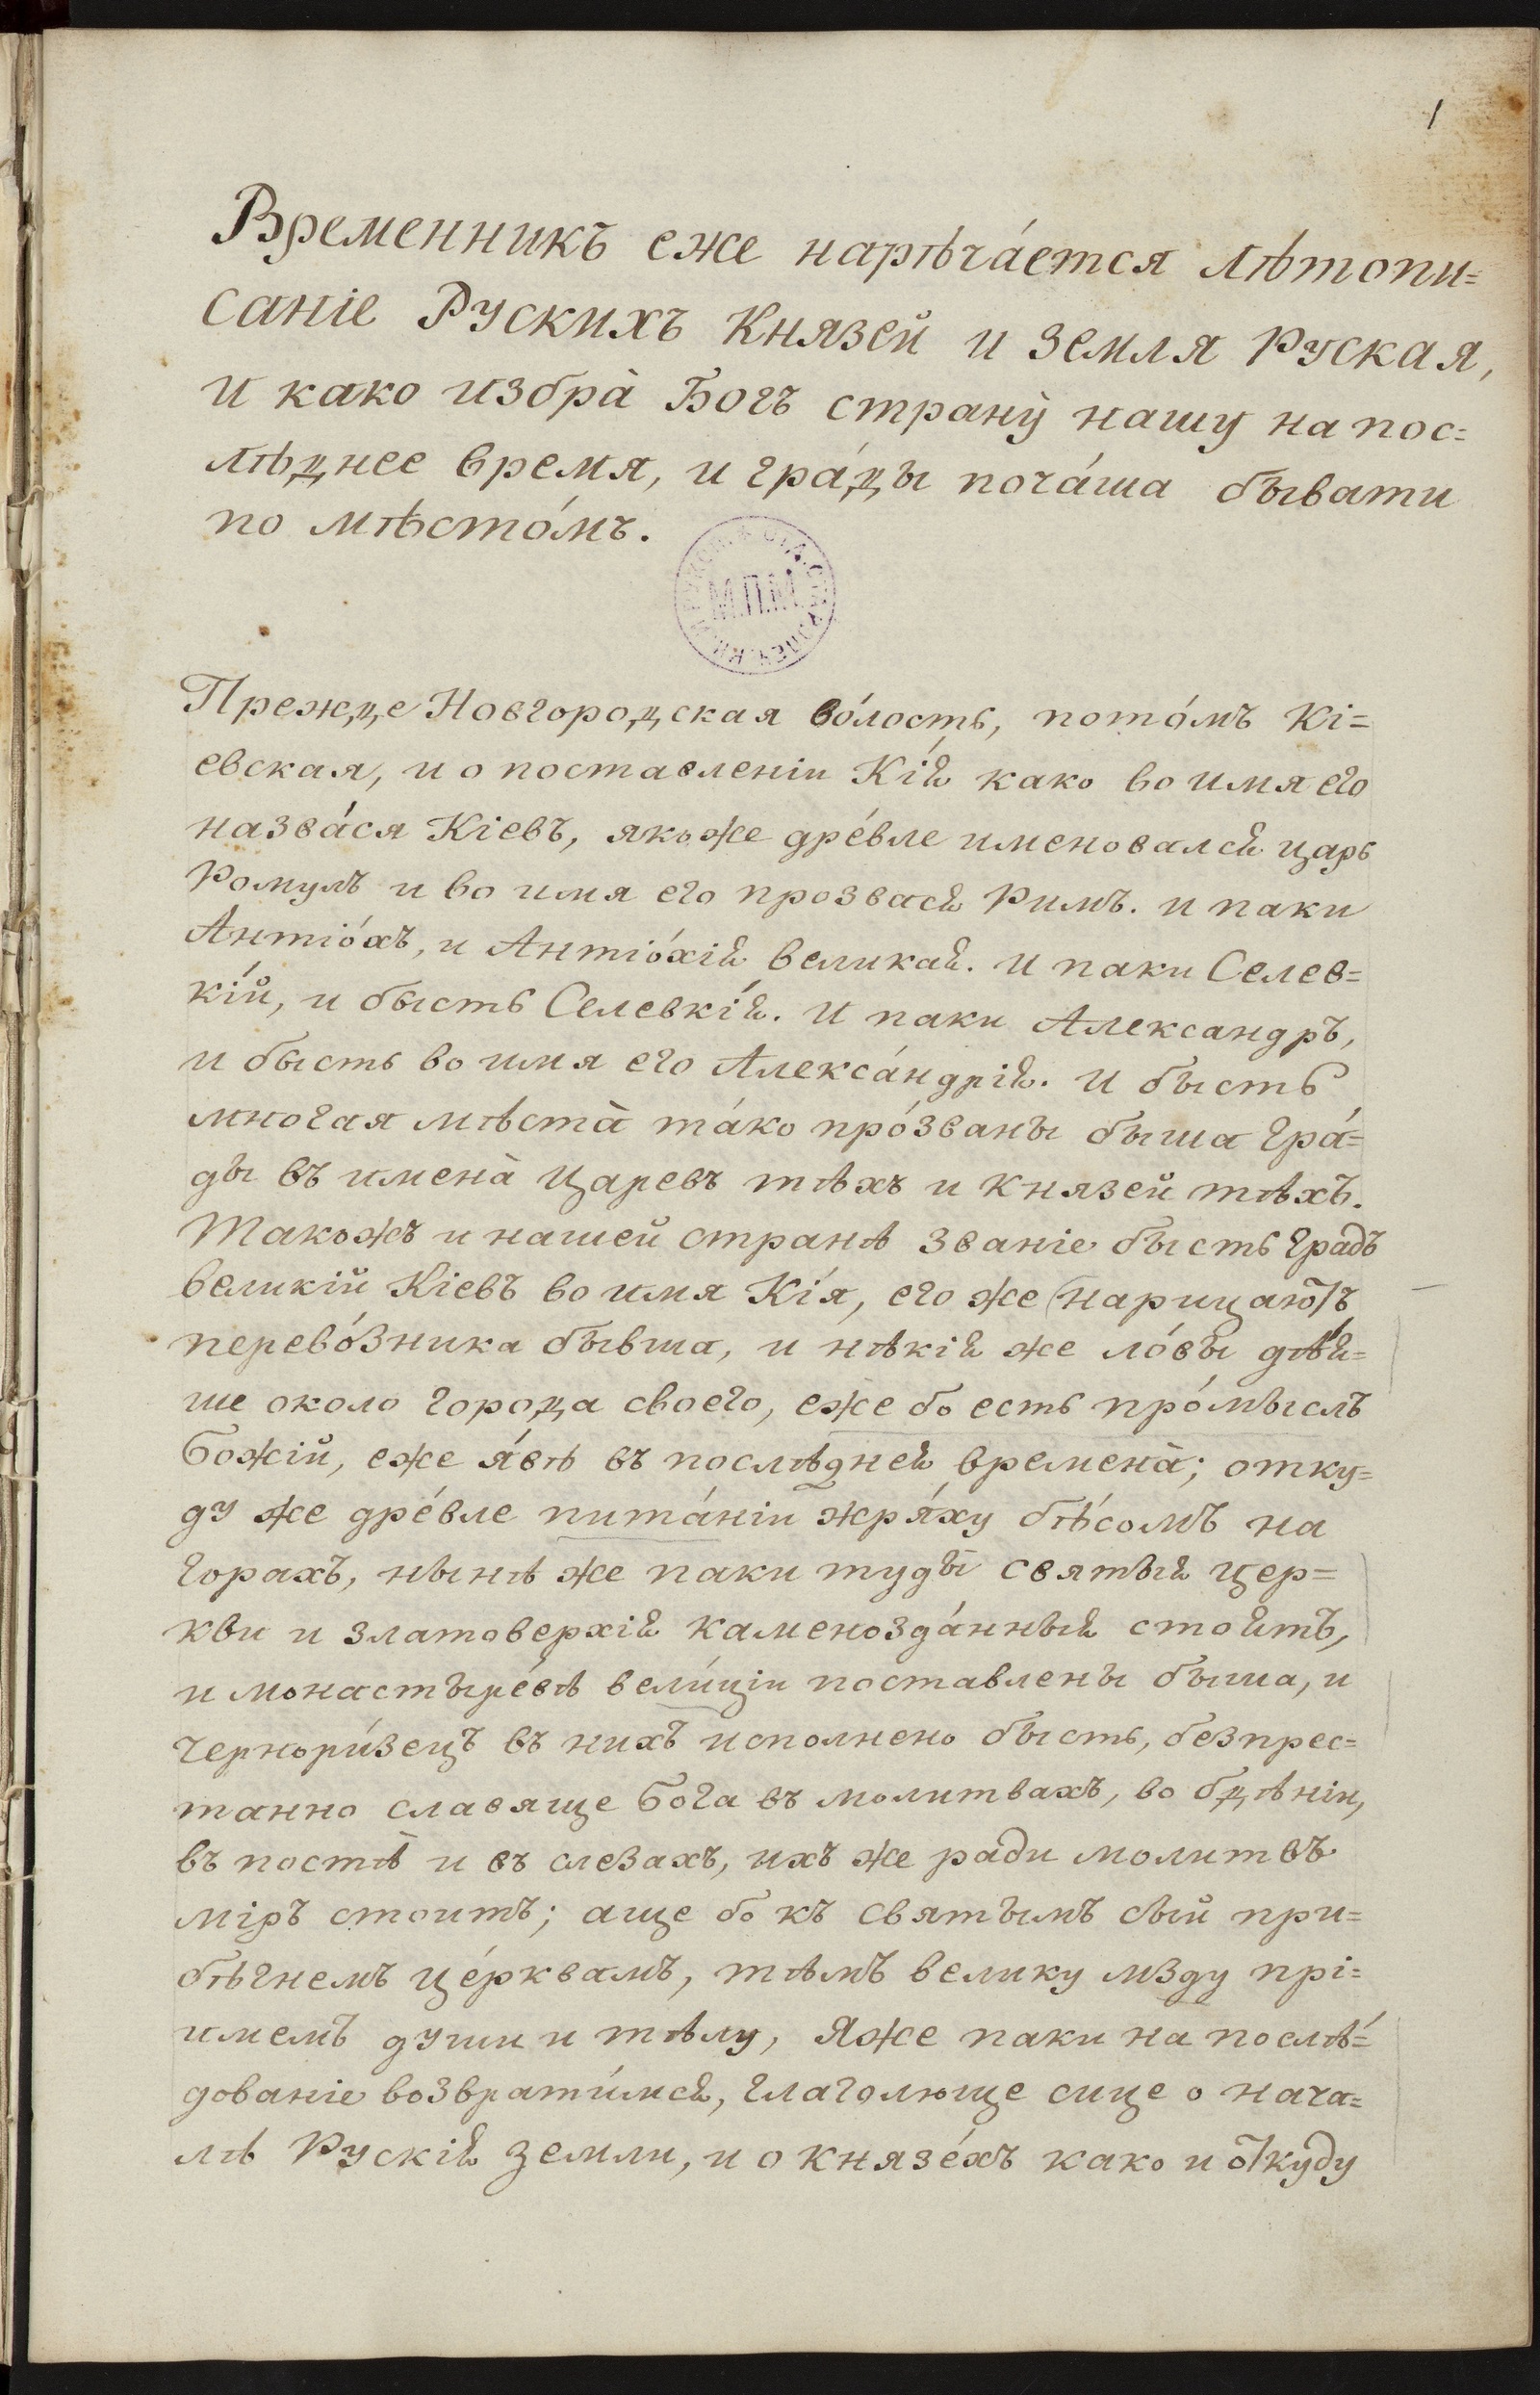 1
Временникъ еже нарѣча́ется лѣтопи=
саніе Рускихъ Князей и земля Руская,
и како избра̀ Богъ страну̀ нашу на пос=
лѣднее время, и гра́ды поча́ша бывати
по мѣсто́мъ.
М.П.М.
Прежде Новгородская во́лость, пото́мъ Кі=
евская, и о поставленіи Кі́ꙗ како во имя его
назва́ся Кіевъ, якоже дре́вле именовалсꙗ царь
Ромулъ и во имя его прозвасꙗ Римъ. и паки
Антіо́хъ, и Антіо́хіꙗ великаꙗ. и паки Селев=
кі́й, и бысть Селевкі́ꙗ. и паки Александръ,
и бысть во имя его Алекса́ндріꙗ. и бысть
многая мѣста̀ та́ко про́званы быша гра́=
ды въ имена̀ Царевъ тѣхъ и Князей тѣхъ.
Такожъ и нашей странѣ званіе бысть градъ
великій Кіевъ во имя Кі́я, его же (нарицаютъ
перево́зника бывша, и нѣкіꙗ же ло́вы дѣ́ꙗ=
ше около города своего, еже бо есть про́мыслъ
Божій, еже я́вѣ въ послѣднеꙗ времена̀; отку=
ду же дре́вле пита́ніи жря́ху бѣ́сомъ на
горахъ, нынѣ же паки туды̀ святыꙗ цер=
кви и златоверхіꙗ каменозда́нныꙗ стоꙗтъ,
и монастыре́вѣ вели́ціи поставлены быша, и
черкори́зецъ въ нихъ исполнено бысть, безпрес=
танно славяще Бога въ молитвахъ, во бдѣніи,
въ постѣ̀ и въ слезахъ, ихъ же ради молитвъ
міръ стоитъ; аще бо къ святымъ сы́й при=
бѣгнемъ це́рквамъ, тѣмъ велику мзду прі=
имемъ души и тѣлу, Яже паки на послѣ́=
дованіе возврати́мсꙗ, глаголюще сице о нача=
лѣ Рускіꙗ земли, и о князе́хъ како и ѿкуду